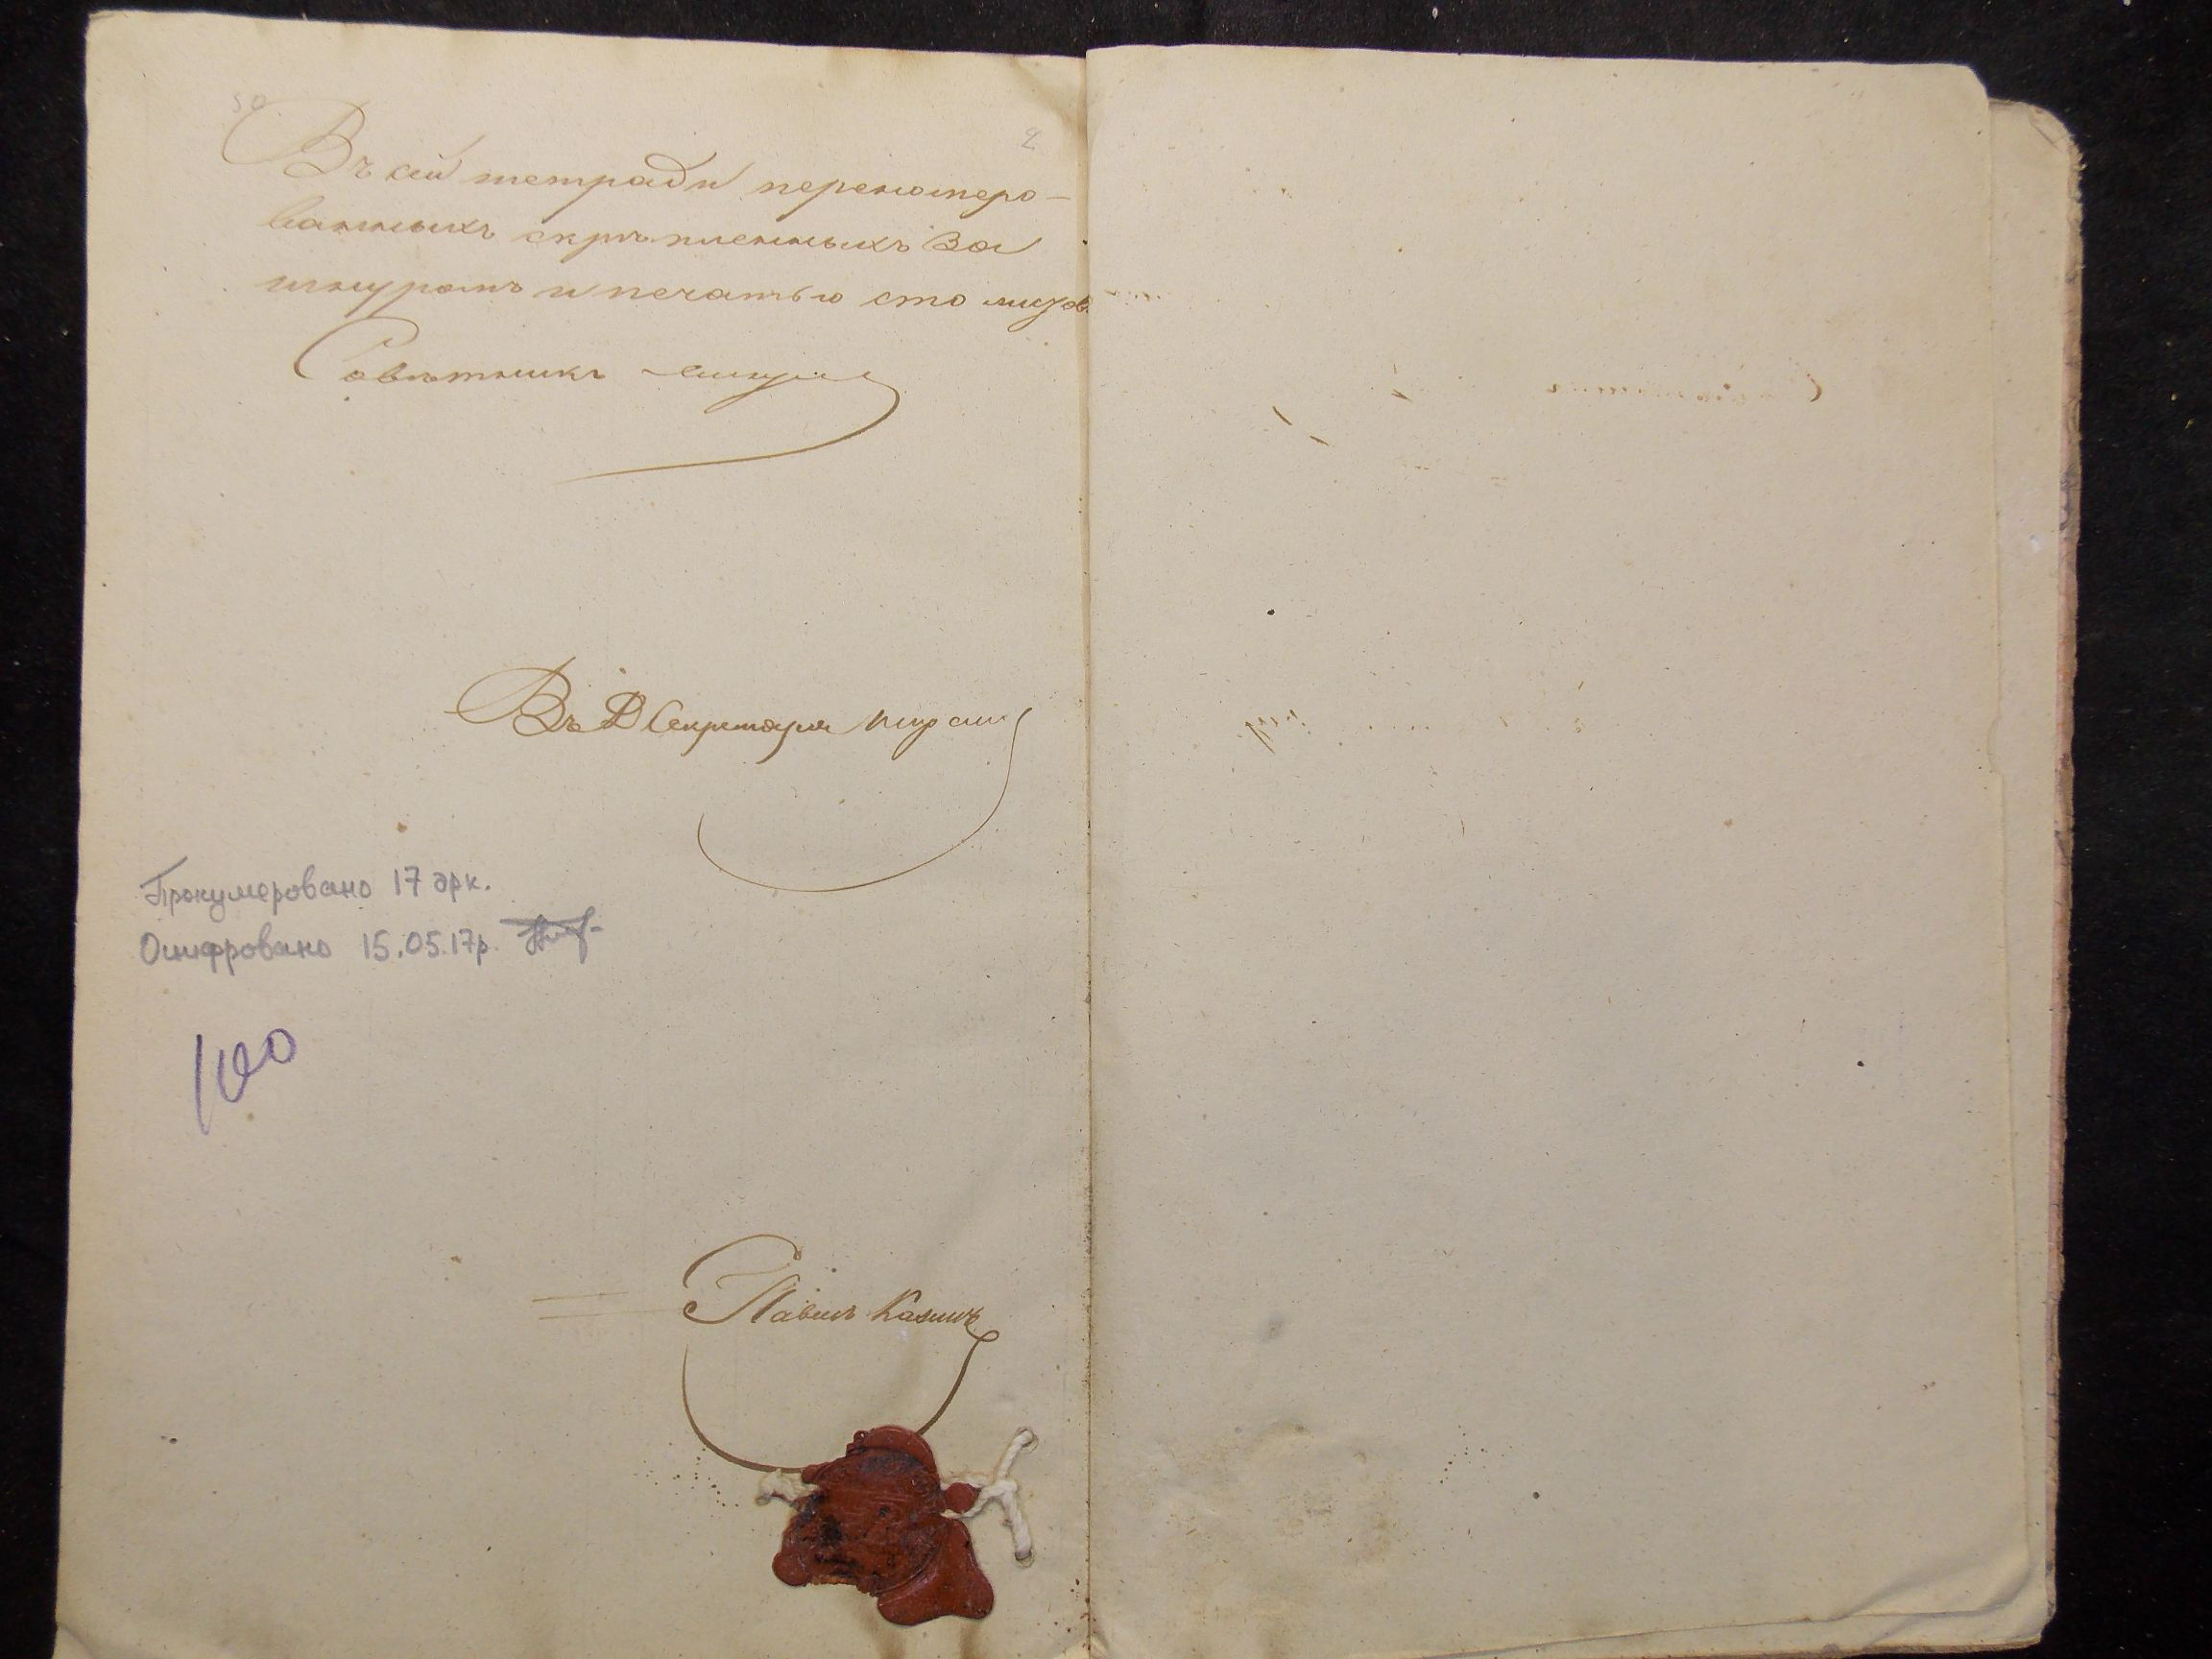 50
Въ сей тетради перенумеро-
ванныхъ скрѣпленныхъ за
шнуромъ и печатью сто листов.
Совѣтникъ
Въ Д Секретаря
Пронумеровано 17 арк.
Оцифровано 15.05.17р.
100
Павелъ